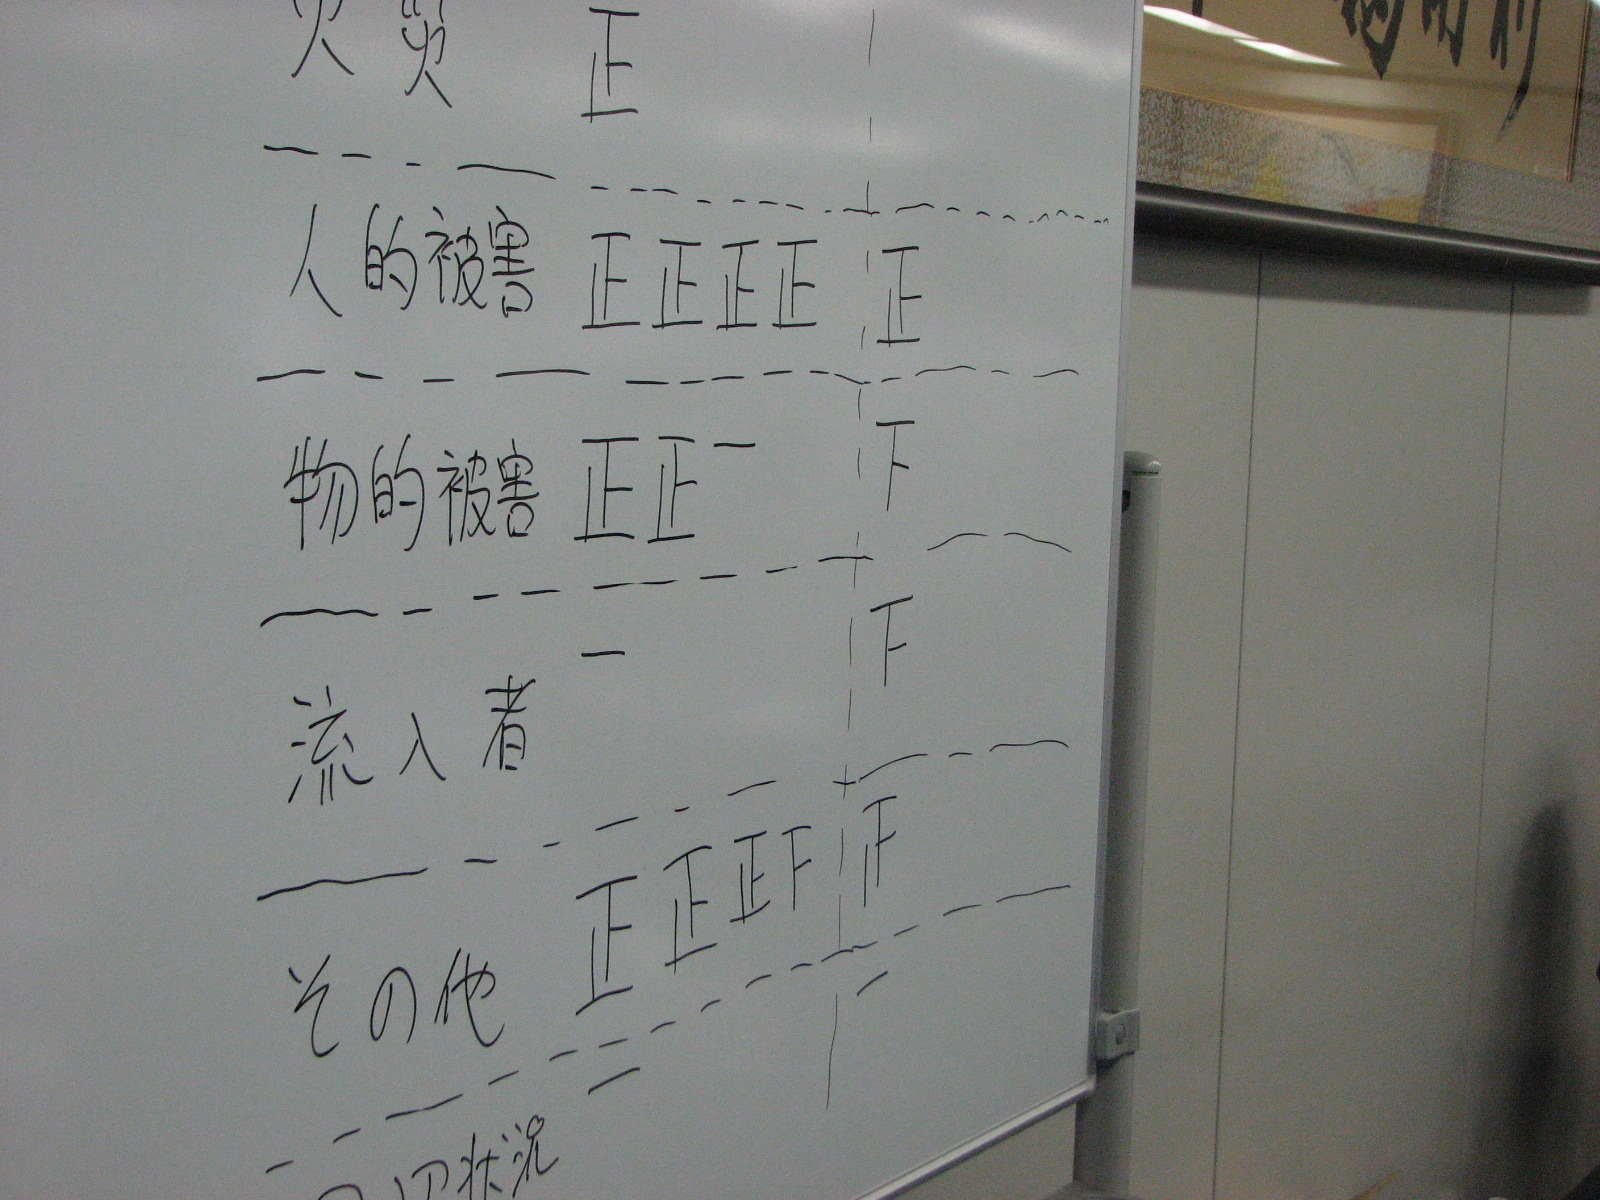 火災 正
人的被害 正正正正 正
物的被害 正正一 下
流入者 一 下
その他 正正正下 正
一 一
状況